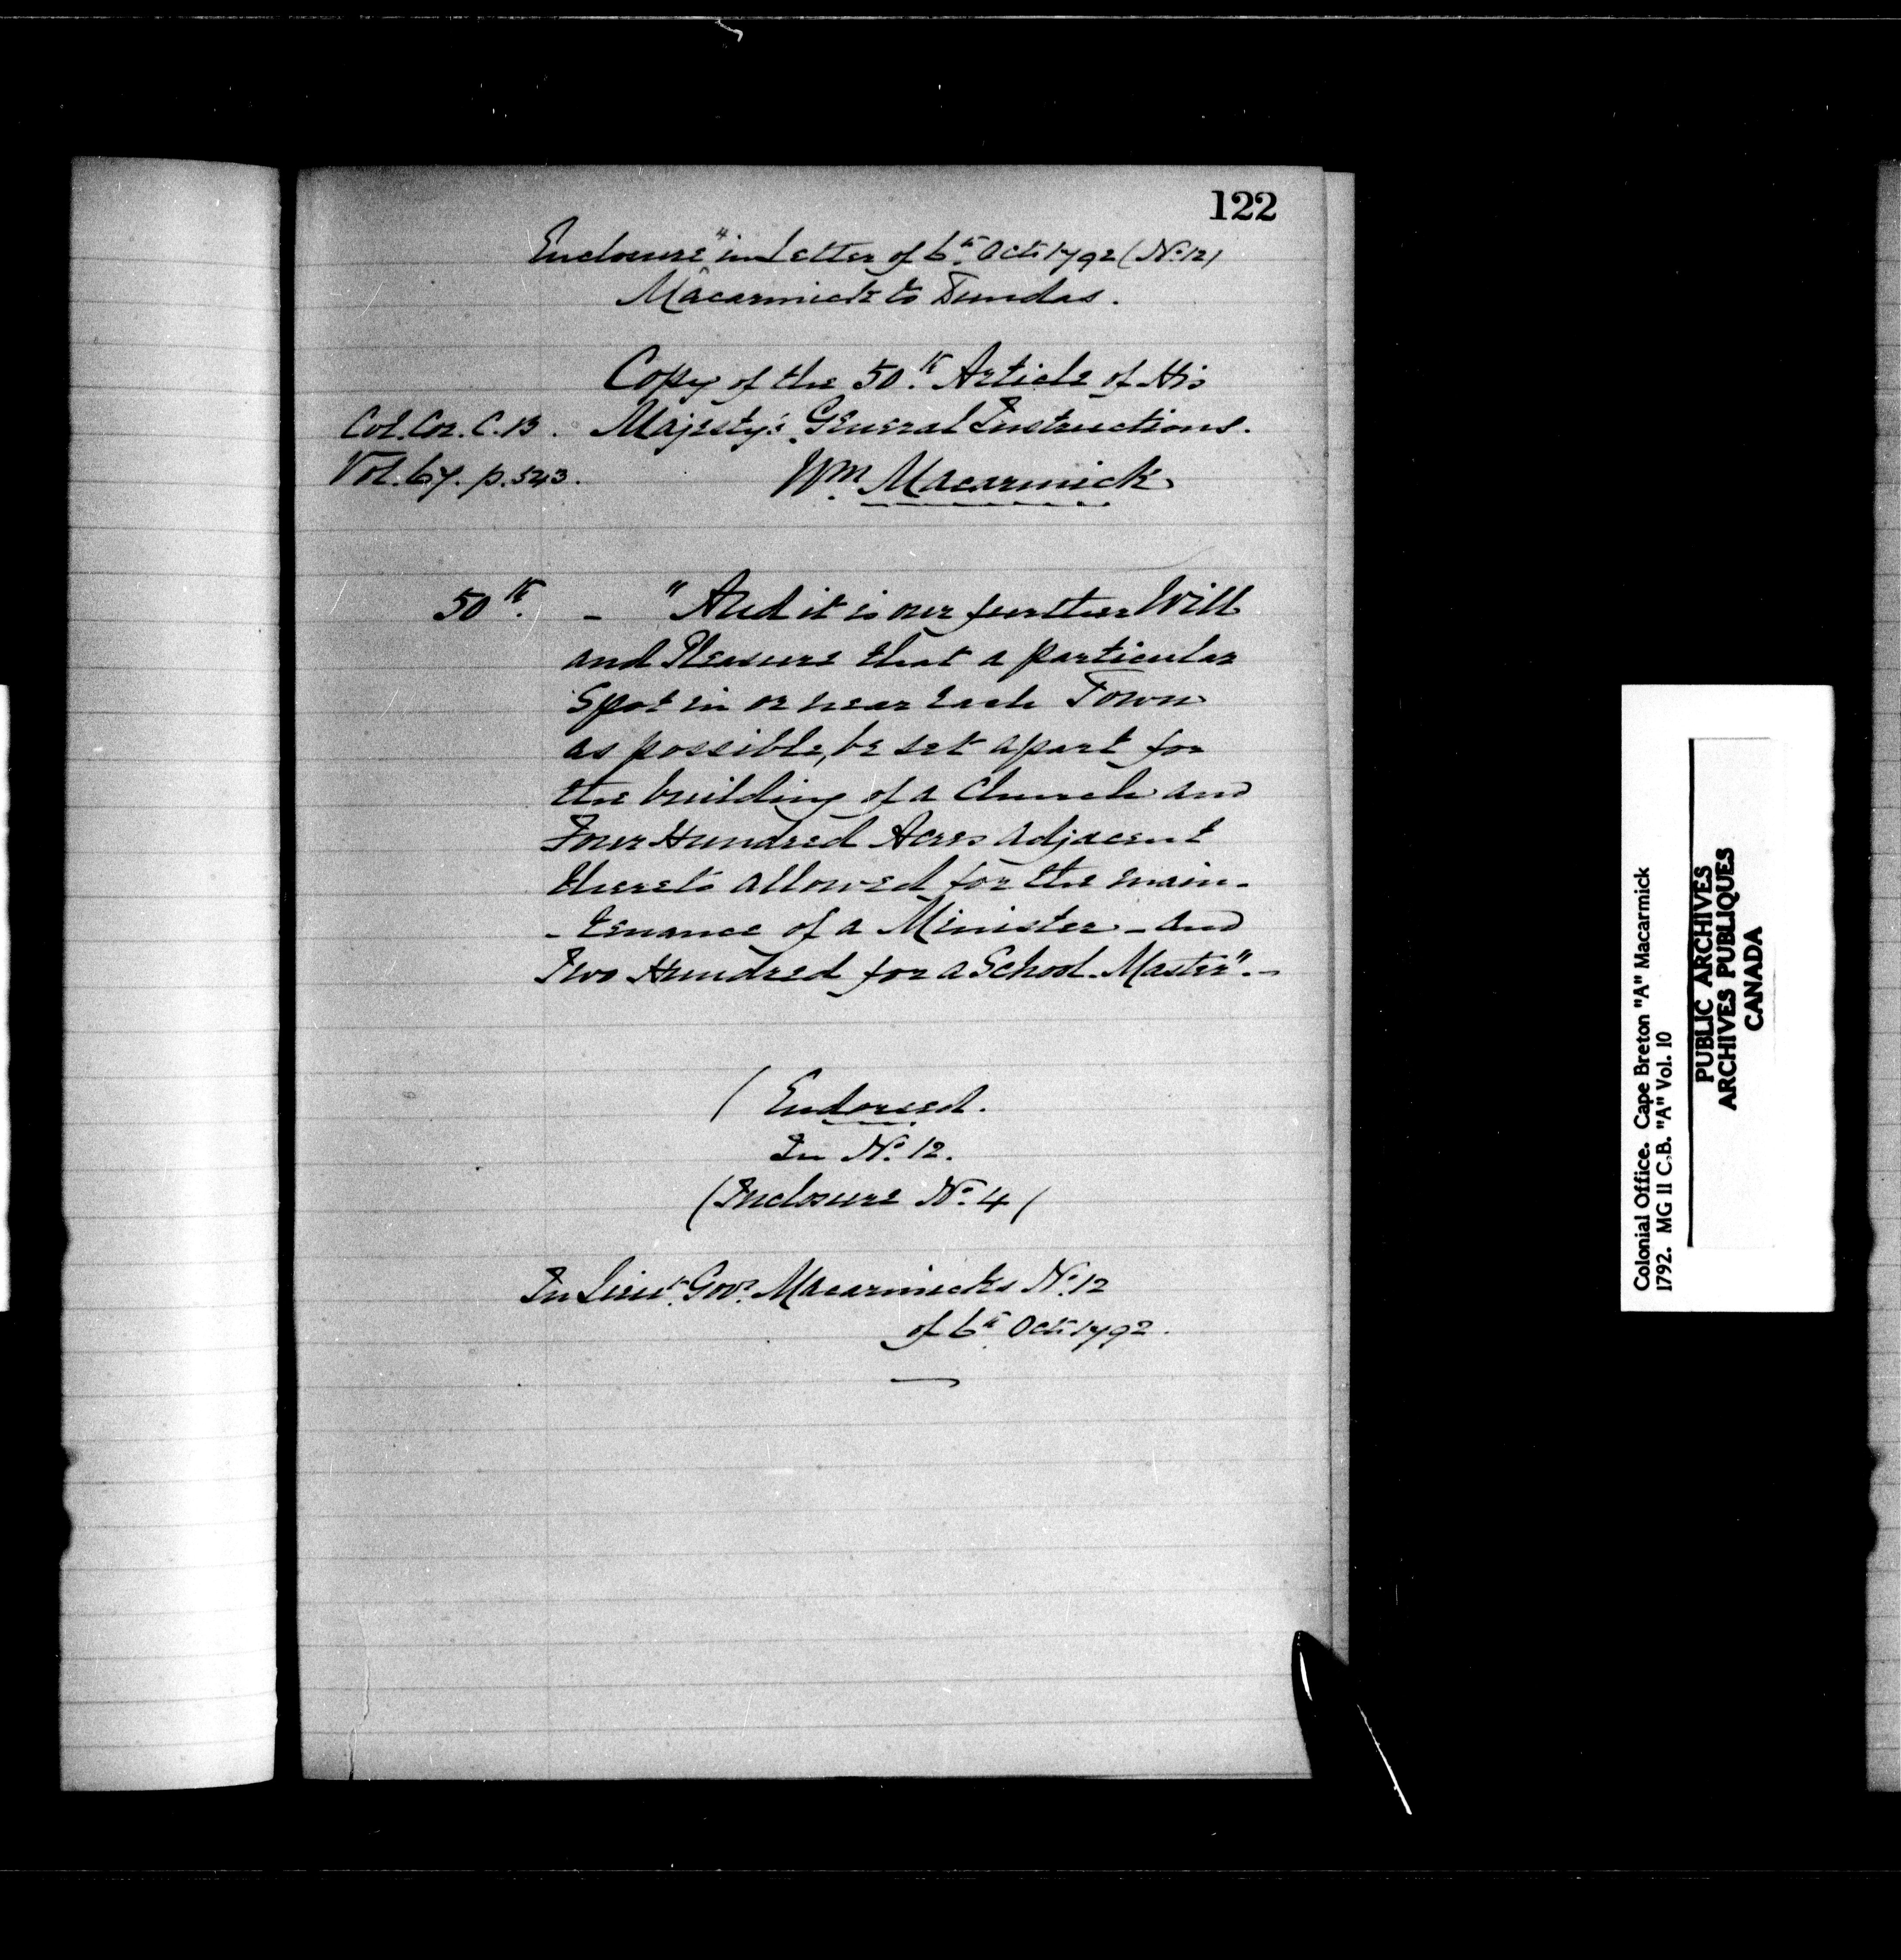 122
Enclosure 4 in Letter of 6th Octr 1792 (No. 12)
Macarmick to Dundas.
Copy of the 50th Article of His
Col. Cor. C. B. Majesty's General Instructions.
Vol. 67. p. 543. Wm Macarmick
50th. - "And it is our further Will
and Pleasure that a particular
Spot in or near each Town
as possible, be set apart for
the building of a Church and
Four Hundred Acres adjacent
thereto allowed for the main-
-tenance of a Minister - and
Two Hundred for a School-Master". -
(Endorsed.
In No. 12.
(Inclosure No. 4)
In Lieut. Govr. Macarmicks No. 12
of 6th Octr 1792.
Colonial Office. Cape Breton "A" Macarmick
1792. MG 11 C.B. "A" Vol. 10
PUBLIC ARCHIVES
ARCHIVES PUBLIQUES
CANADA